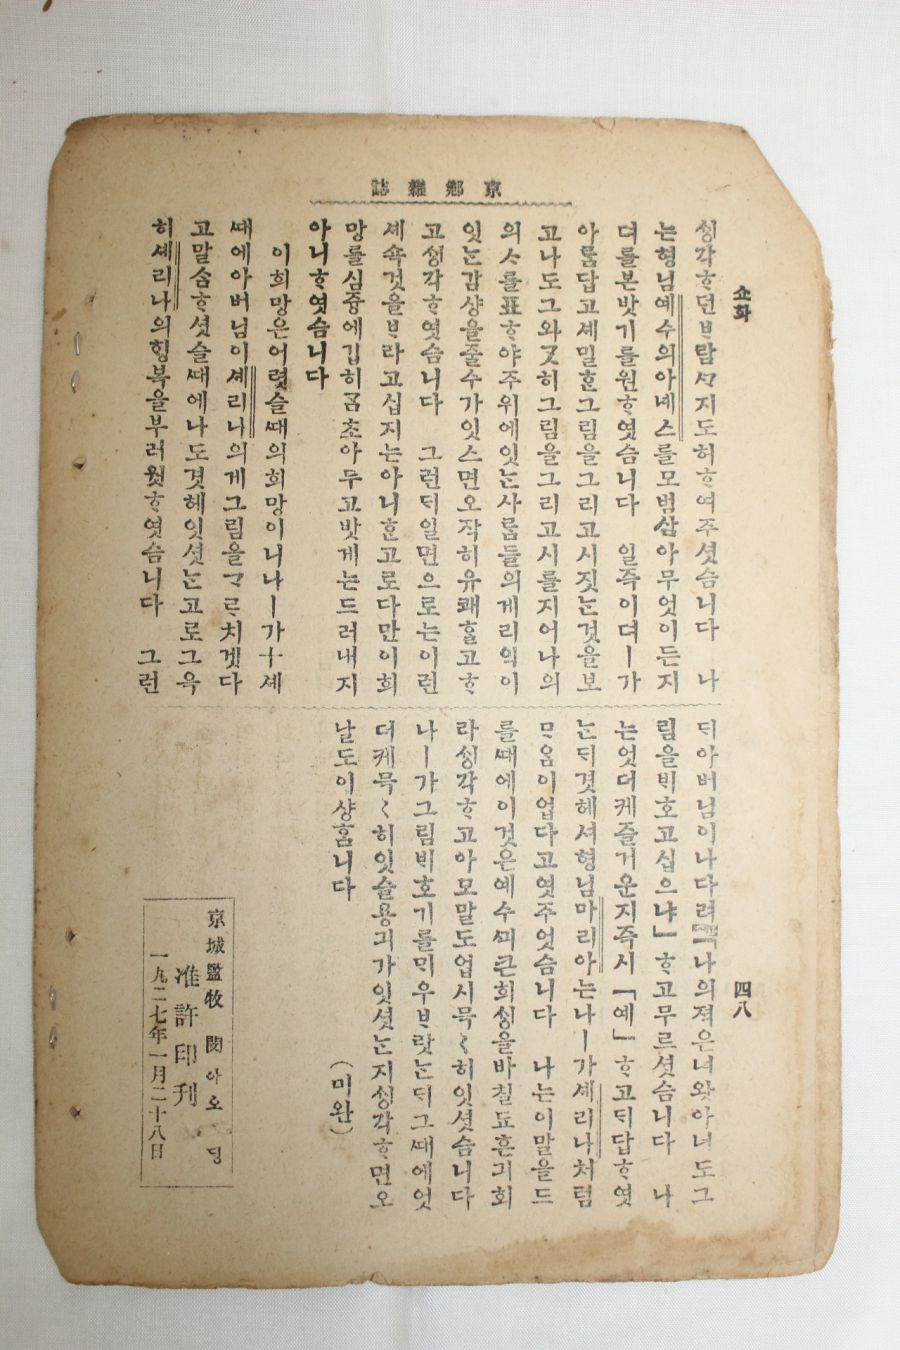 京鄕雜誌
소화
四八
싱각ᄒᆞ던ᄇᆞ람ᄭᆞ지도허ᄒᆞ여주셧슴니다 나
는형님예수의아녜스를모범삼아무엇이든지
뎌를본밧기를원ᄒᆞ엿슴니다 일즉이뎌ㅣ가
아ᄅᆞᆷ답고셰밀ᄒᆞᆫ그림을그리고시짓ᄂᆞᆫ것을보
고나도그와ᄀᆞᆺ히그림을그리고시를지어나의
의ᄉᆞ를표ᄒᆞ야주위에잇ᄂᆞᆫ사ᄅᆞᆷ들의게리익이
잇ᄂᆞᆫ감샹을줄수가잇스면오작히유쾌ᄒᆞᆯ고ᄒᆞ
고ᄉᆡᆼ각ᄒᆞ엿슴니다 그런ᄃᆡ일면으로는이런
셰쇽것을ᄇᆞ라고십지는아니ᄒᆞᆫ고로다만이희
망를심즁에깁히ᄀᆞᆷ초아두고밧게는드러내지
아니ᄒᆞ엿슴니다
이희망은어렷슬ᄯᅢ의희망이니나ㅣ가十셰
ᄯᅢ에아버님이셰리나의게그림을ᄀᆞᄅᆞ치겟다
고말ᄉᆞᆷᄒᆞ셧슬ᄯᅢ에나도겻헤잇셧ᄂᆞᆫ고로그윽
히셰리나의ᄒᆡᆼ복을부러워ᄒᆞ엿슴니다 그런
ᄃᆡ아버님이나다려「나의젹은녀왕아너도그
림을ᄇᆡ호고십으냐」ᄒᆞ고무르셧슴니다 나
는엇더케즐거운지즉시「예」ᄒᆞ고ᄃᆡ답ᄒᆞ엿
ᄂᆞᆫᄃᆡ겻헤셔형님마리아는나ㅣ가셰리나처럼
ᄆᆞᄋᆞᆷ이업다고엿주엇슴니다 나는이말을드
를ᄯᅢ에이것은예수ᄭᅴ큰희ᄉᆡᆼ을바칠됴흔긔회
라ᄉᆡᆼ각ᄒᆞ고아모말도업시묵〱히잇셧슴니다
나ㅣ가그림ᄇᆡ호기를ᄆᆡ우ᄇᆞ랏ᄂᆞᆫᄃᆡ그ᄯᅢ에엇
더케묵〱히잇슬용긔가잇셧ᄂᆞᆫ지ᄉᆡᆼ각ᄒᆞ면오
날도이샹ᄒᆞᆷ니다 (미완)
京城監牧 閔아오 딩
准許印刊
一九二七年一月二十八日